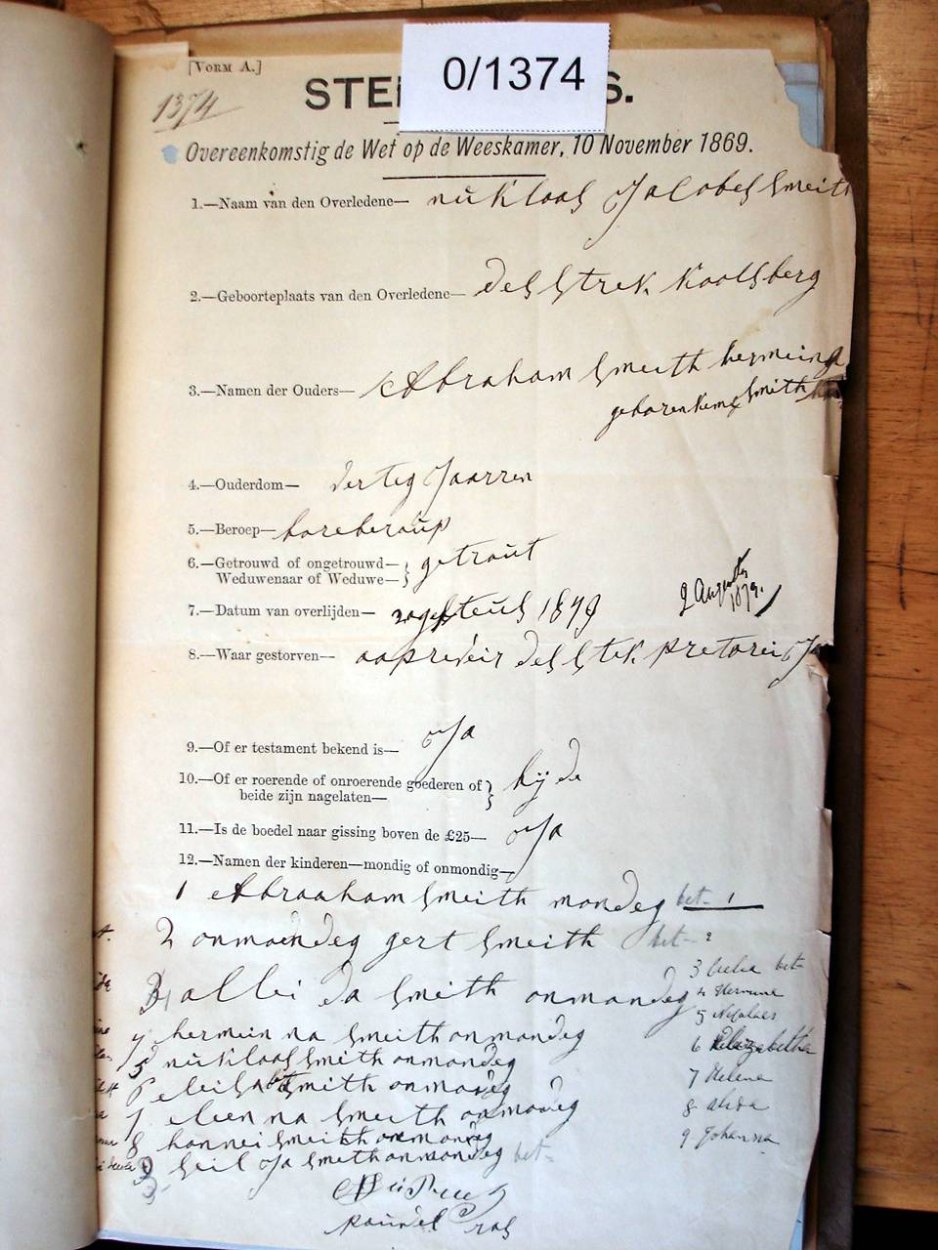 [VORM A.]
0/1374
1374
STE S.
Overeenkomstig de Wet op de Weeskamer, 10 November 1869.
1.—Naam van den Overledene— nuklaas Jacobes Smeith
2.—Geboorteplaats van den Overledene— destrek
3.—Namen der Ouders— Abraham Smeith
geboren Smith
4.—Ouderdom— derteg Jaarren
5.—Beroep— boreberoup
6.—Getrouwd of ongetrouwd—
Weduwenaar of Weduwe— } getrout
7.—Datum van overlijden— 1879 2 Augustus 1879.
8.—Waar gestorven— destek pretorei
9.—Of er testament bekend is— Ja
10.—Of er roerende of onroerende goederen of
beide zijn nagelaten— } bijde
11.—Is de boedel naar gissing boven de £25— Ja
12.—Namen der kinderen—mondig of onmondig—
1 Abraaham Smeith mondeg bet- 1
2 onmondeg gert Smeith bet- 2
3 alleida Smeith onmondeg 3 bet-
4 Hermina
4 hermeinna Smeith onmondeg 5 Nicolaas
5 nuklaas Smith onmondeg 6 Elizabetha
6 Smith onmondeg 7 Helena
7 eleenna Smeith onmondeg 8 Alida
8 hannei Smeith onmondeg 9 Johanna
9 Smeth onmondeg bet-